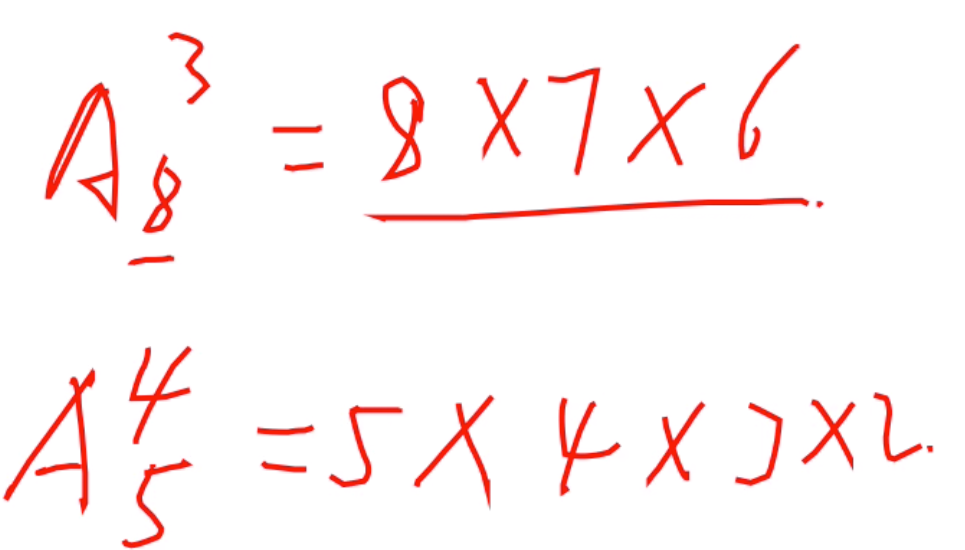 A₈³ = 8×7×6
A₅⁴ = 5×4×3×2.